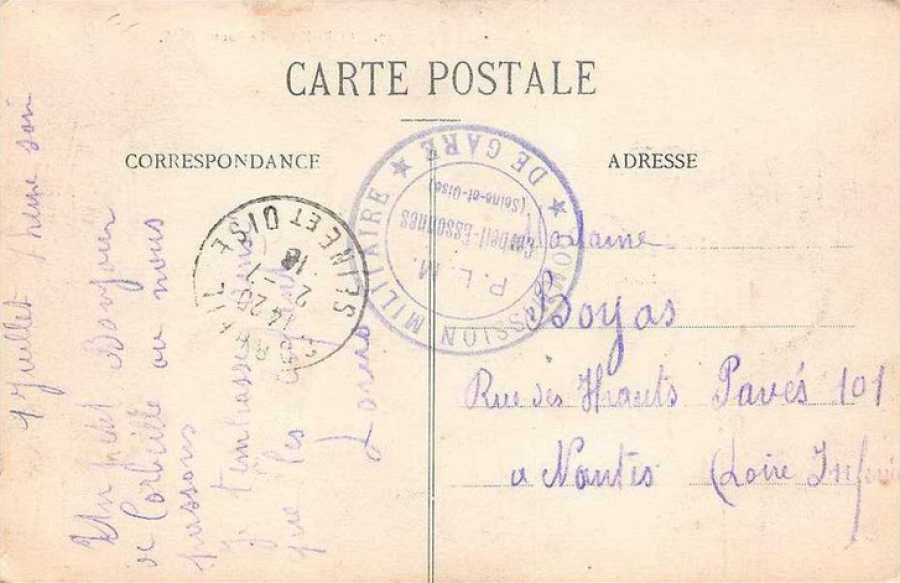 CARTE POSTALE
CORRESPONDANCE
ADRESSE
Juillet heure soir
Un petit Bonjour
de Corbeille ou nous
passons
Je t'embrasse
que les
Louis
COMMISSION MILITAIRE ★ DE GARE ★
P. L. M.
Corbeil-Essonnes
(Seine-et-Oise)
CORBEIL
SEINE ET OISE
14 20
2 - 7
18
Madame
Boyas
Rue des Hauts Pavés 101
a Nantes (Loire Inférie